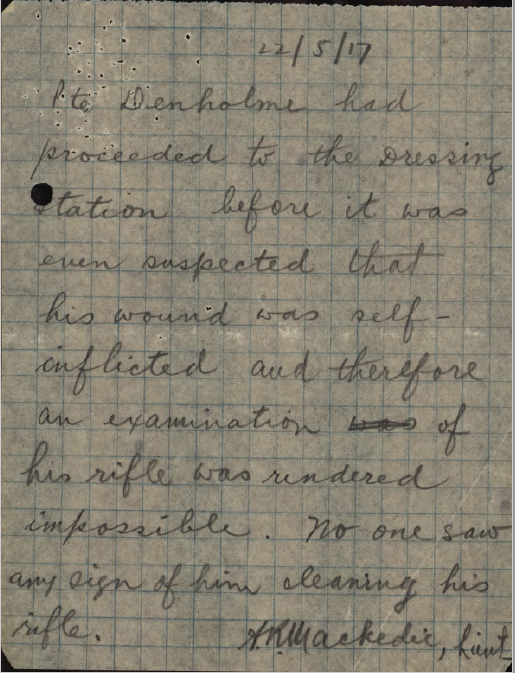 22/5/17
Pte Denholme had
proceeded to the Dressing
station before it was
even suspected that
his wound was self-
inflicted and therefore
an examination was of
his rifle was rendered
impossible. No one saw
any sign of him cleaning his
rifle. Mackedie, Lieut